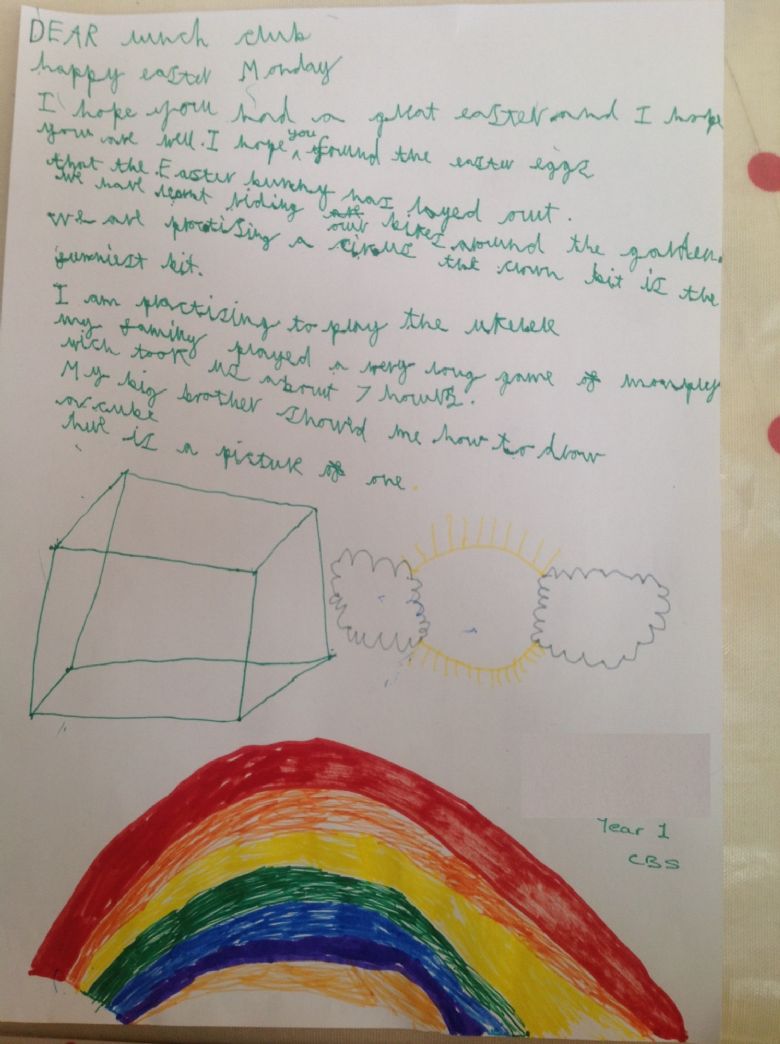 DEAR lunch club
happy easter Monday
I hope you had a great easter and I hope
you are well. I hope you found the easter eggs
that the Easter bunny has layed out.
we have learnt riding our bikes around the garden.
we are practising a circus the clown bit is the
funniest bit.
I am practising to play the ukelele
my family played a very long game of monply
wich took us about 7 hours.
My big brother showd me how to drow
a cube
here is a picture of one.
Year 1
CBS